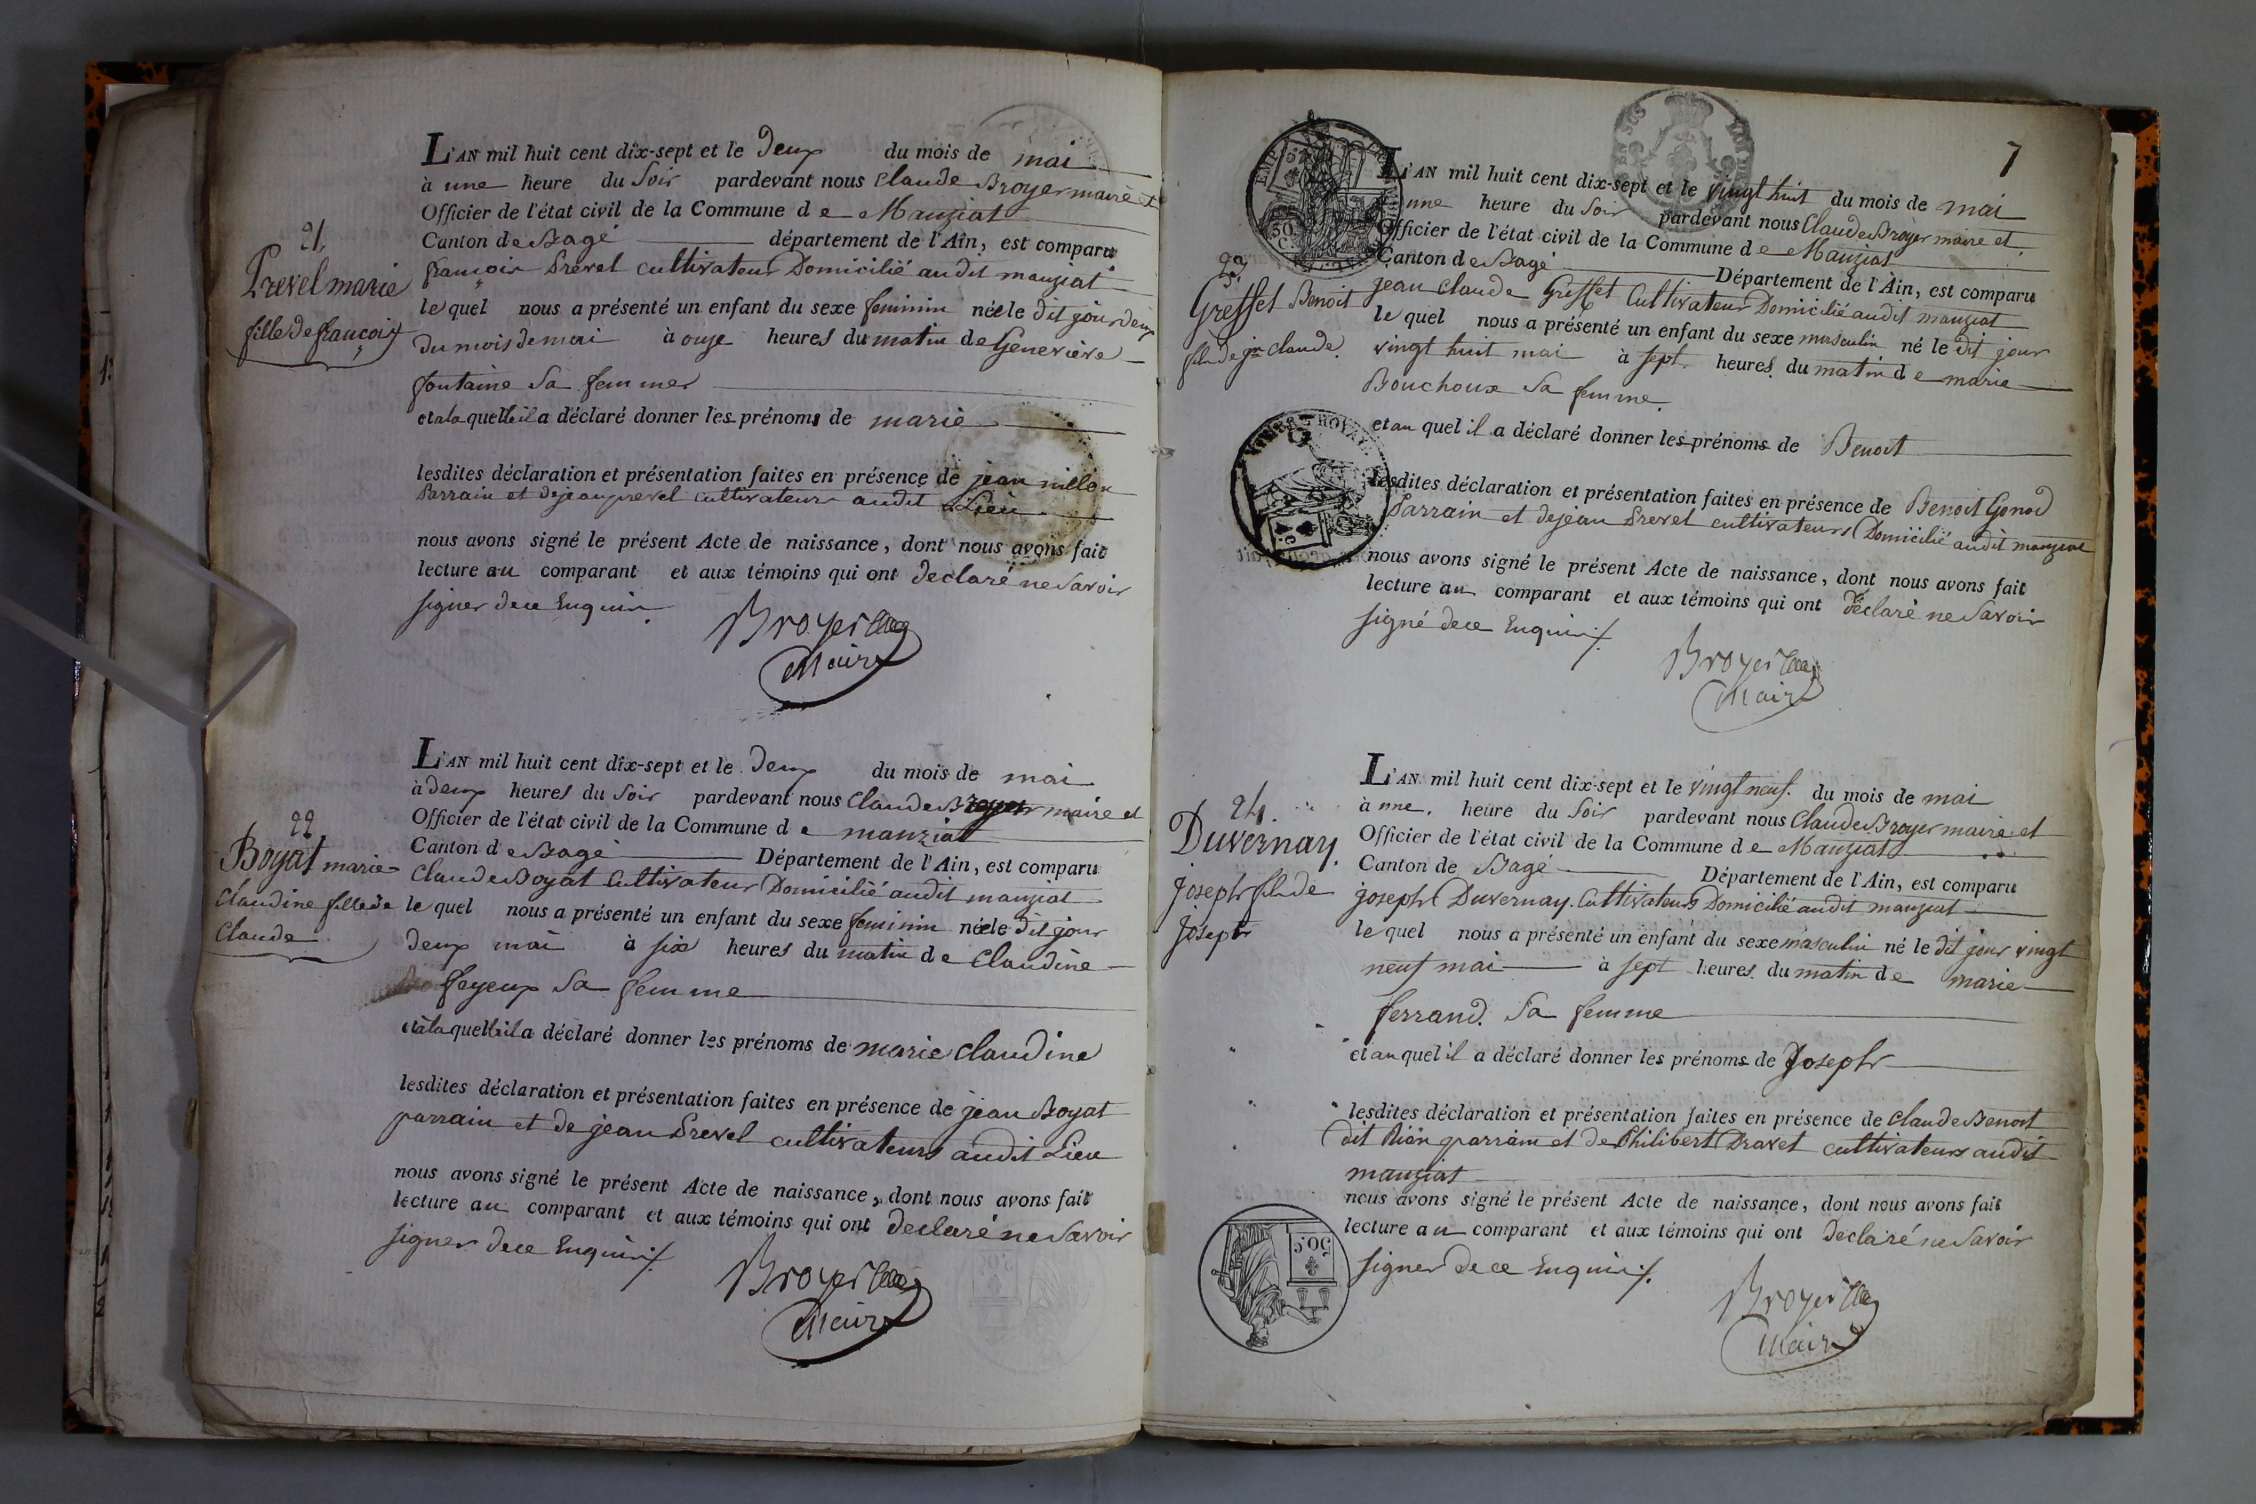 L'AN mil huit cent dix-sept et le deux du mois de mai
à une heure du Soir pardevant nous Claude Broyer maire et
Officier de l'état civil de la Commune de Manziat
21.
Canton de Bagé département de l'Ain, est comparu
Prevel marie
françois Prevel cultivateur Domicilié audit manziat
fille de françois
lequel nous a présenté un enfant du sexe feminin née le dit jour deux
du mois de mai à onze heures du matin de Genevieve
fontaine Sa femme
et a la quelle il a déclaré donner les prénoms de marie
lesdites déclaration et présentation faites en présence de jean millon
Parrain et de jean prevel cultivateurs audit Lieu
nous avons signé le présent Acte de naissance, dont nous avons fait
lecture au comparant et aux témoins qui ont declaré ne Savoir
signer de ce Enquis.
Broyer
Maire
L'AN mil huit cent dix-sept et le deux du mois de mai
à deux heures du Soir pardevant nous Claude Broyer maire et
Officier de l'état civil de la Commune de manziat
22.
Canton de Bagé Département de l'Ain, est comparu
Boyat marie
Claude Boyat Cultivateur Domicilié audit manziat
Claudine fille de
lequel nous a présenté un enfant du sexe feminin née le dit jour
Claude
deux mai à six heures du matin de Claudine
feyeux Sa femme
et à la quelle il a déclaré donner les prénoms de marie Claudine
lesdites déclaration et présentation faites en présence de jean Boyat
parrain et de jean Prevel cultivateurs audit Lieu
nous avons signé le présent Acte de naissance, dont nous avons fait
lecture au comparant et aux témoins qui ont declaré ne Savoir
signer de ce Enquis
Broyer
Maire
7
L'AN mil huit cent dix-sept et le vingt huit du mois de mai
à une heure du Soir pardevant nous Claude Broyer maire et
Officier de l'état civil de la Commune de Manziat
23.
Canton de Bagé Département de l'Ain, est comparu
Greffet Benoit
jean Claude Greffet Cultivateur Domicilié audit manziat
fils de jn claude
lequel nous a présenté un enfant du sexe masculin né le dit jour
vingt huit mai à sept heures du matin de marie
Bouchoux Sa femme.
et au quel il a déclaré donner les prénoms de Benoit
lesdites déclaration et présentation faites en présence de Benoit Gonod
Parrain et de jean Prevel cultivateurs Domicilié audit manziat
nous avons signé le présent Acte de naissance, dont nous avons fait
lecture au comparant et aux témoins qui ont déclaré ne Savoir
signé de ce Enquis
Broyer
Maire
L'AN mil huit cent dix-sept et le vingt neuf du mois de mai
24.
à une heure du Soir pardevant nous Claude Broyer maire et
Duvernay.
Officier de l'état civil de la Commune de Manziat
Canton de Bagé Département de l'Ain, est comparu
Joseph fils de
joseph Duvernay Cultivateur Domicilié audit manziat
Joseph
lequel nous a présenté un enfant du sexe masculin né le dit jour vingt
neuf mai à sept heures du matin de marie
ferrand. Sa femme
et au quel il a déclaré donner les prénoms de Joseph
lesdites déclaration et présentation faites en présence de Claude Benoit
dit parrain et de Philibert Dravet cultivateurs audit
manziat
nous avons signé le présent Acte de naissance, dont nous avons fait
lecture au comparant et aux témoins qui ont declaré ne Savoir
50c
signer de ce Enquis
Broyer
Maire